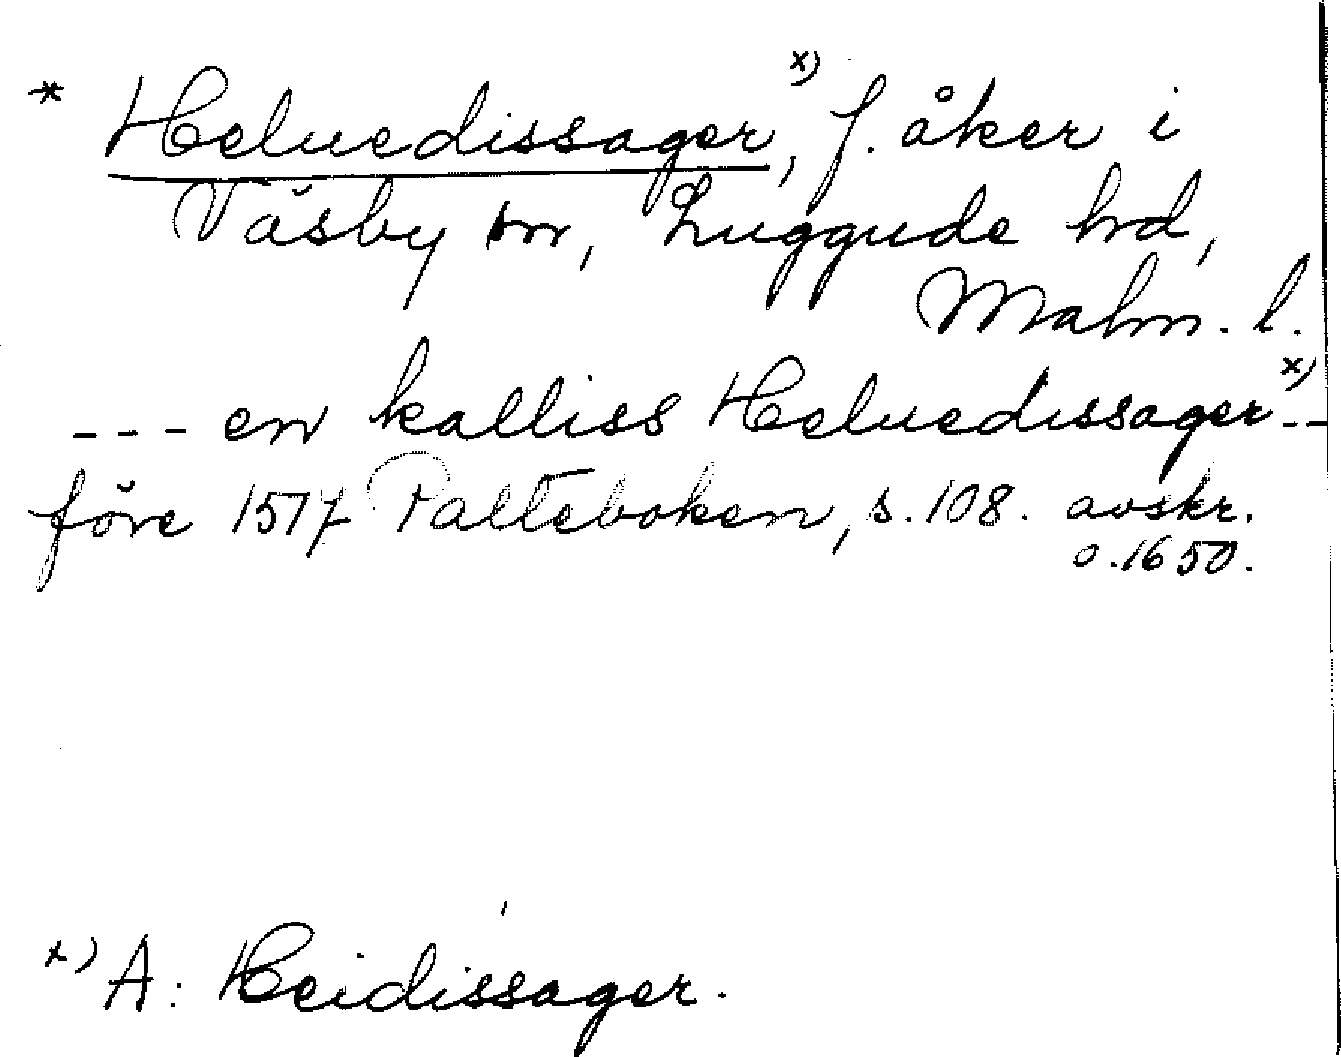 * Heluedissager, x) f. åker i
Väsby sn, Luggude hd,
Malm. l.
--- en kalliss Heluedissager x) --
före 1517 Palteboken, s. 108. avskr.
o. 1650.
x) A: Heidissager.